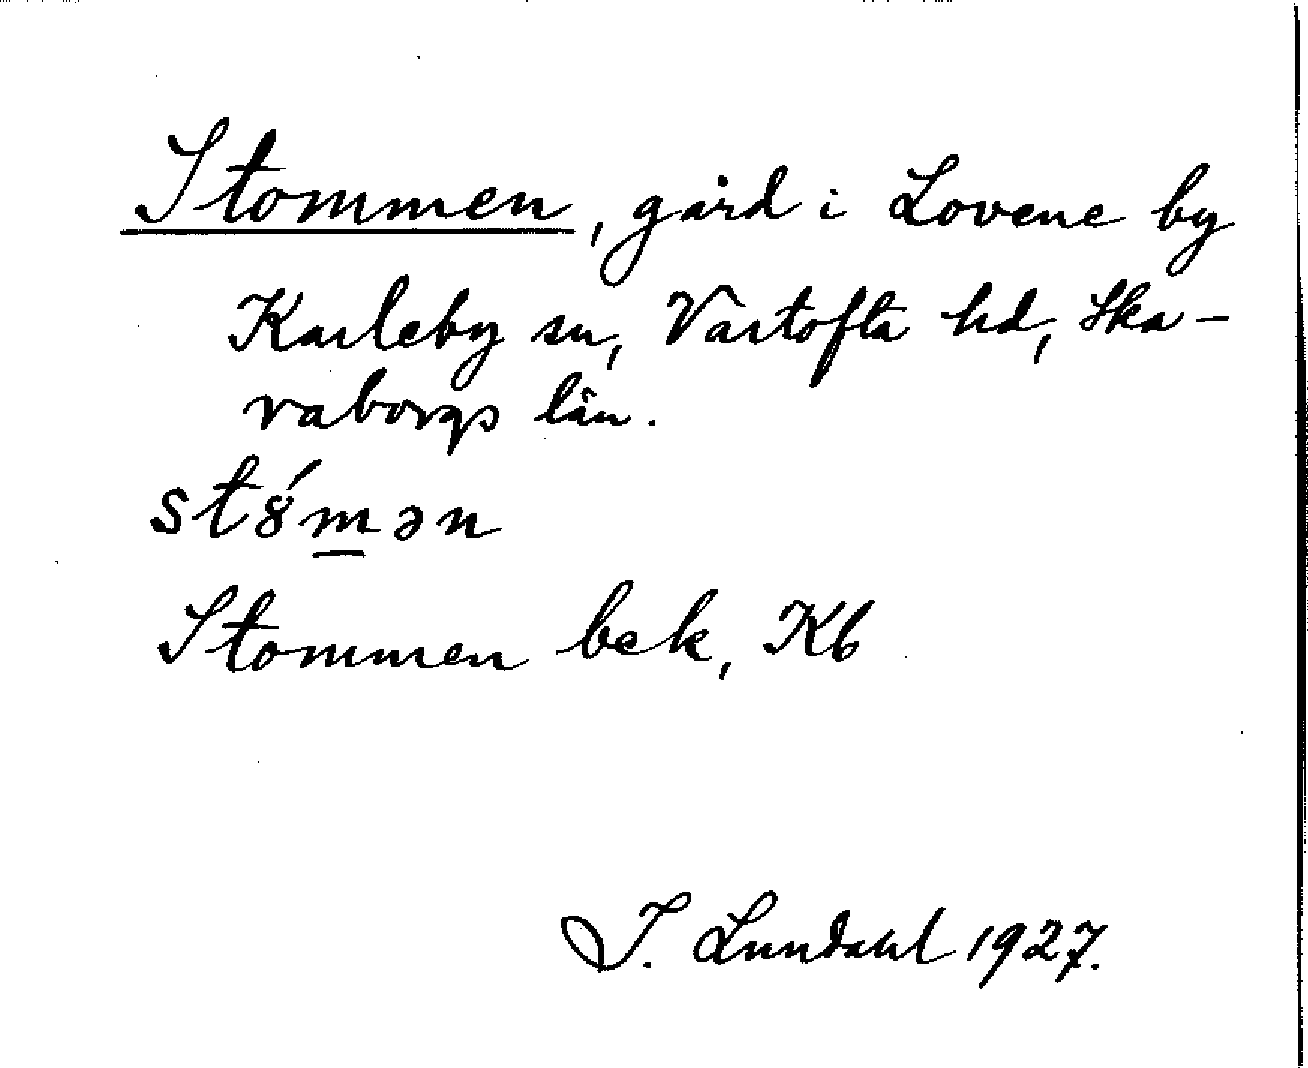 Stommen, gård i Lovene by
Karleby sn, Vartofta hd, Ska-
raborgs län.
st8́m̲ən
Stommen bek, Kb
I. Lundahl 1927.